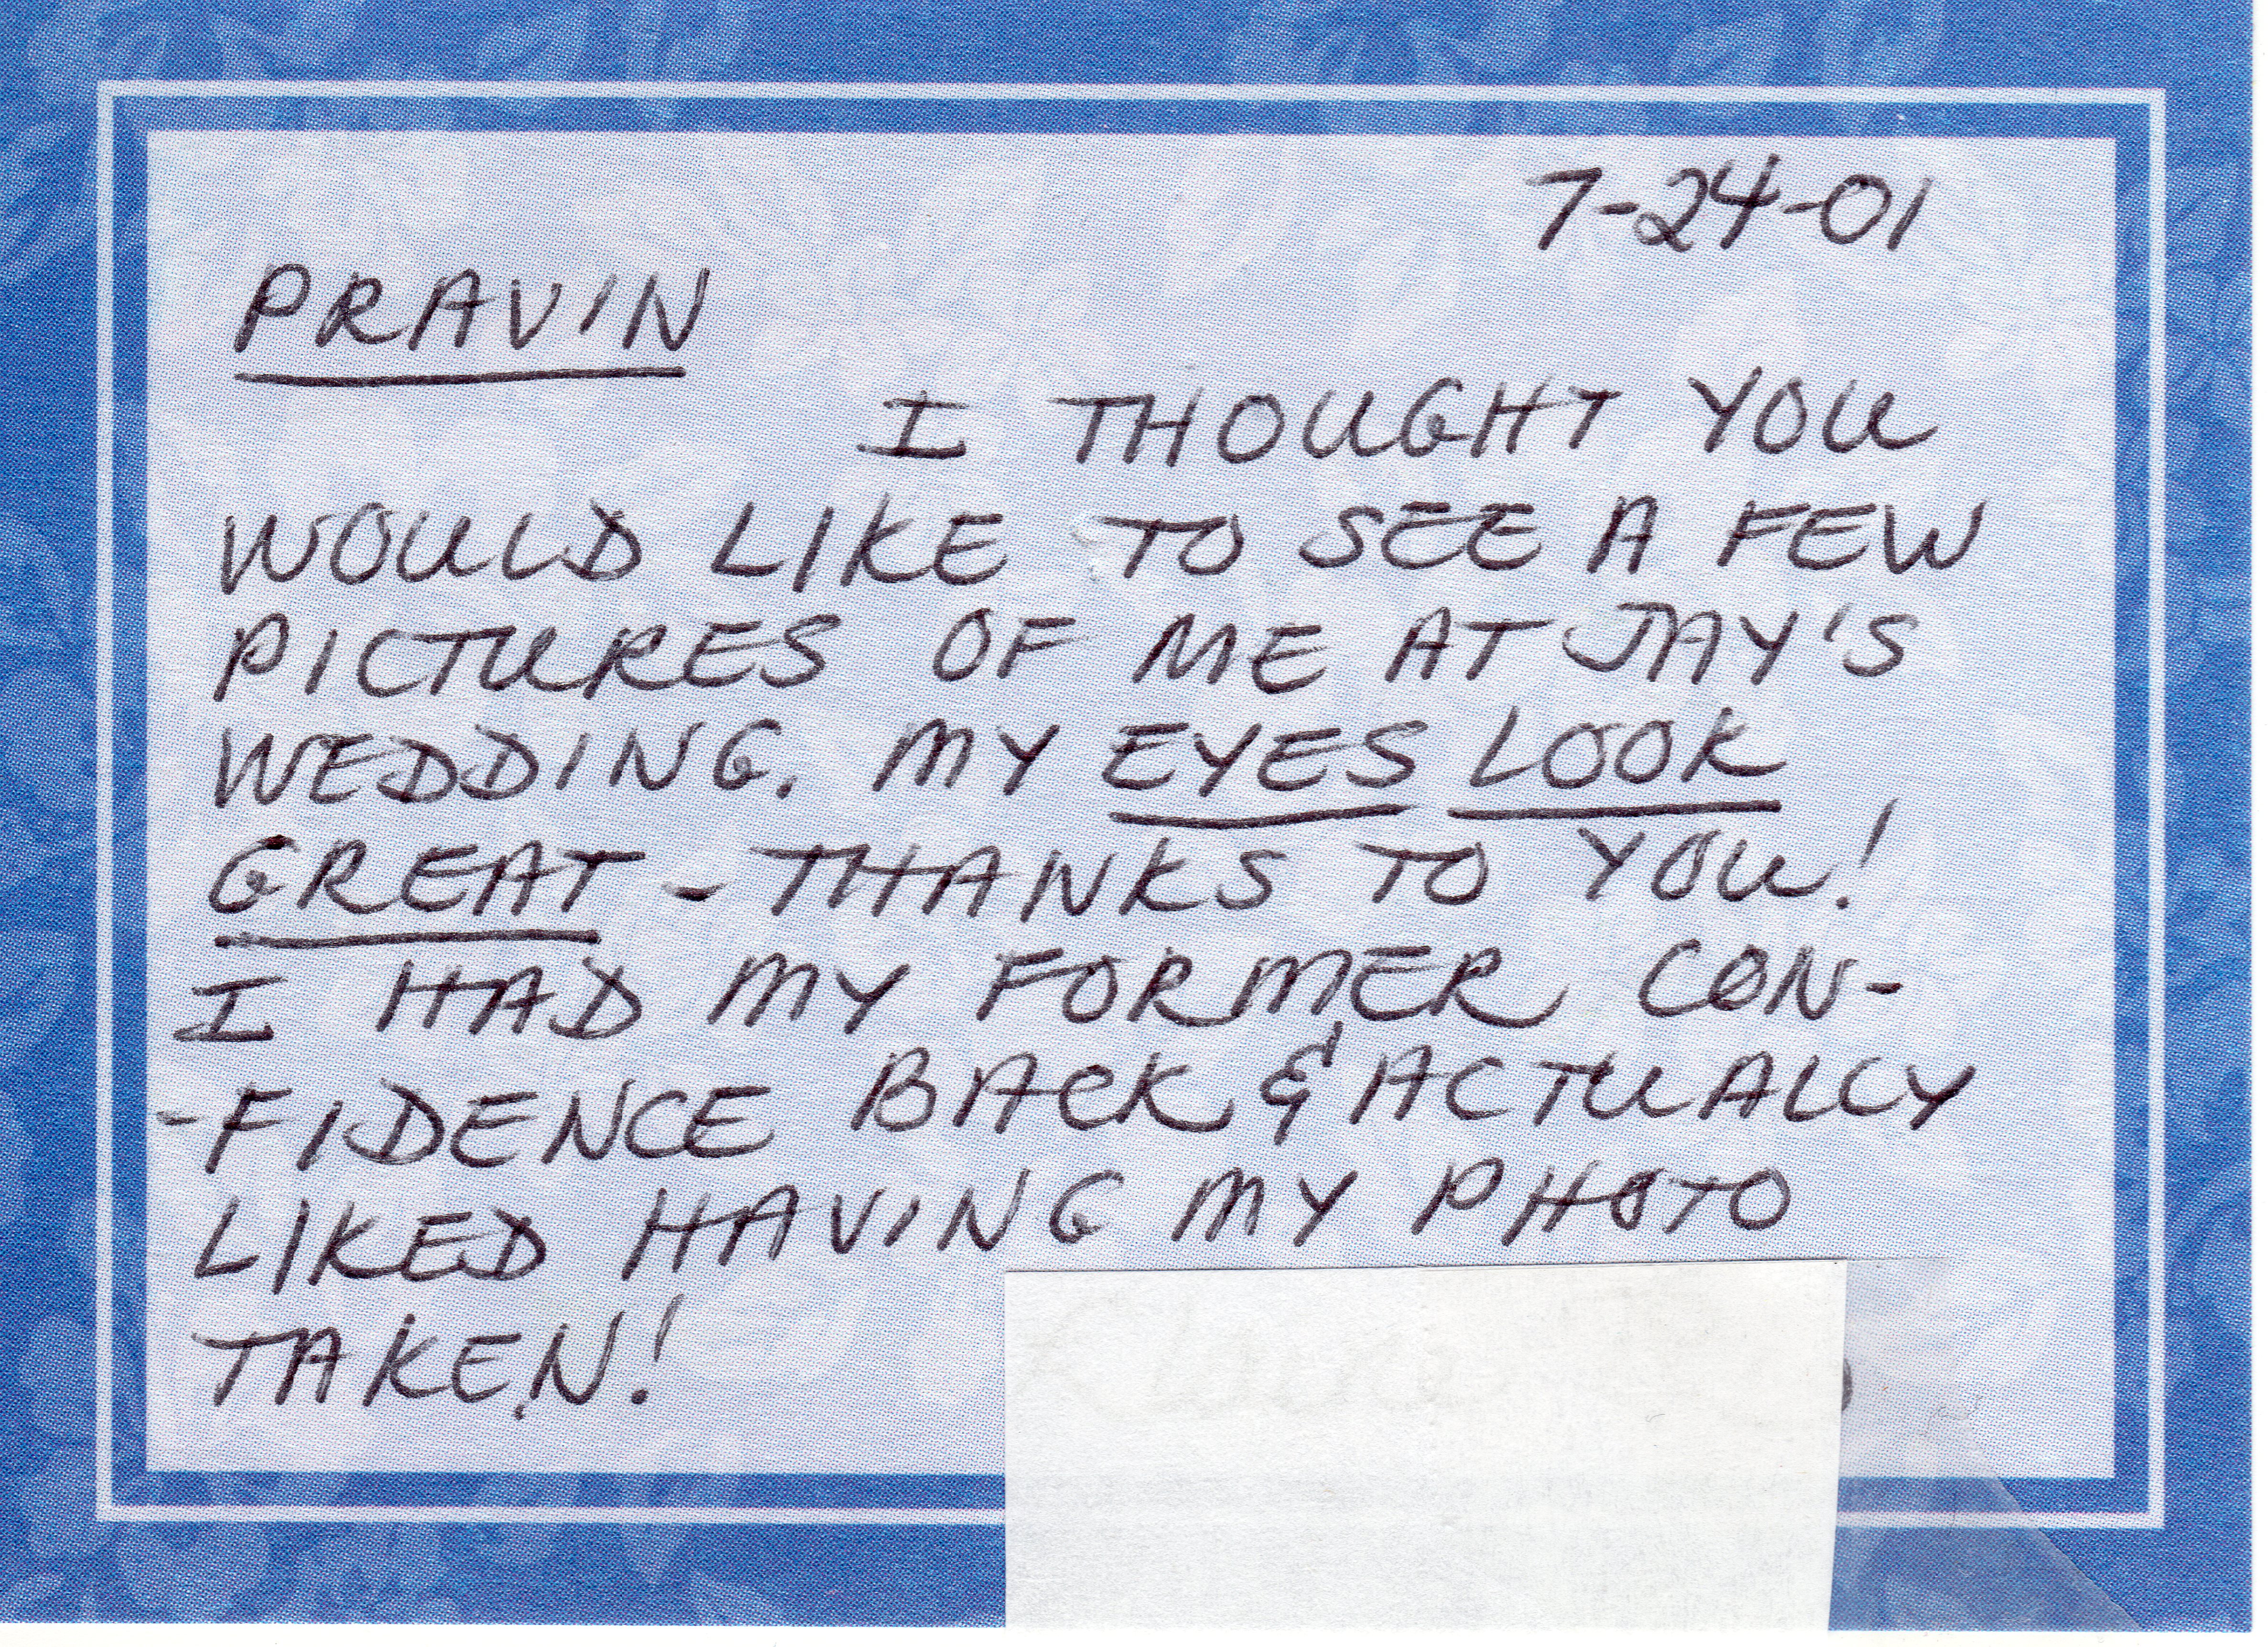 7-24-01
PRAVIN
I THOUGHT YOU
WOULD LIKE TO SEE A FEW
PICTURES OF ME AT JAY'S
WEDDING. MY EYES LOOK
GREAT - THANKS TO YOU!
I HAD MY FORMER CON-
-FIDENCE BACK & ACTUALLY
LIKED HAVING MY PHOTO
TAKEN!